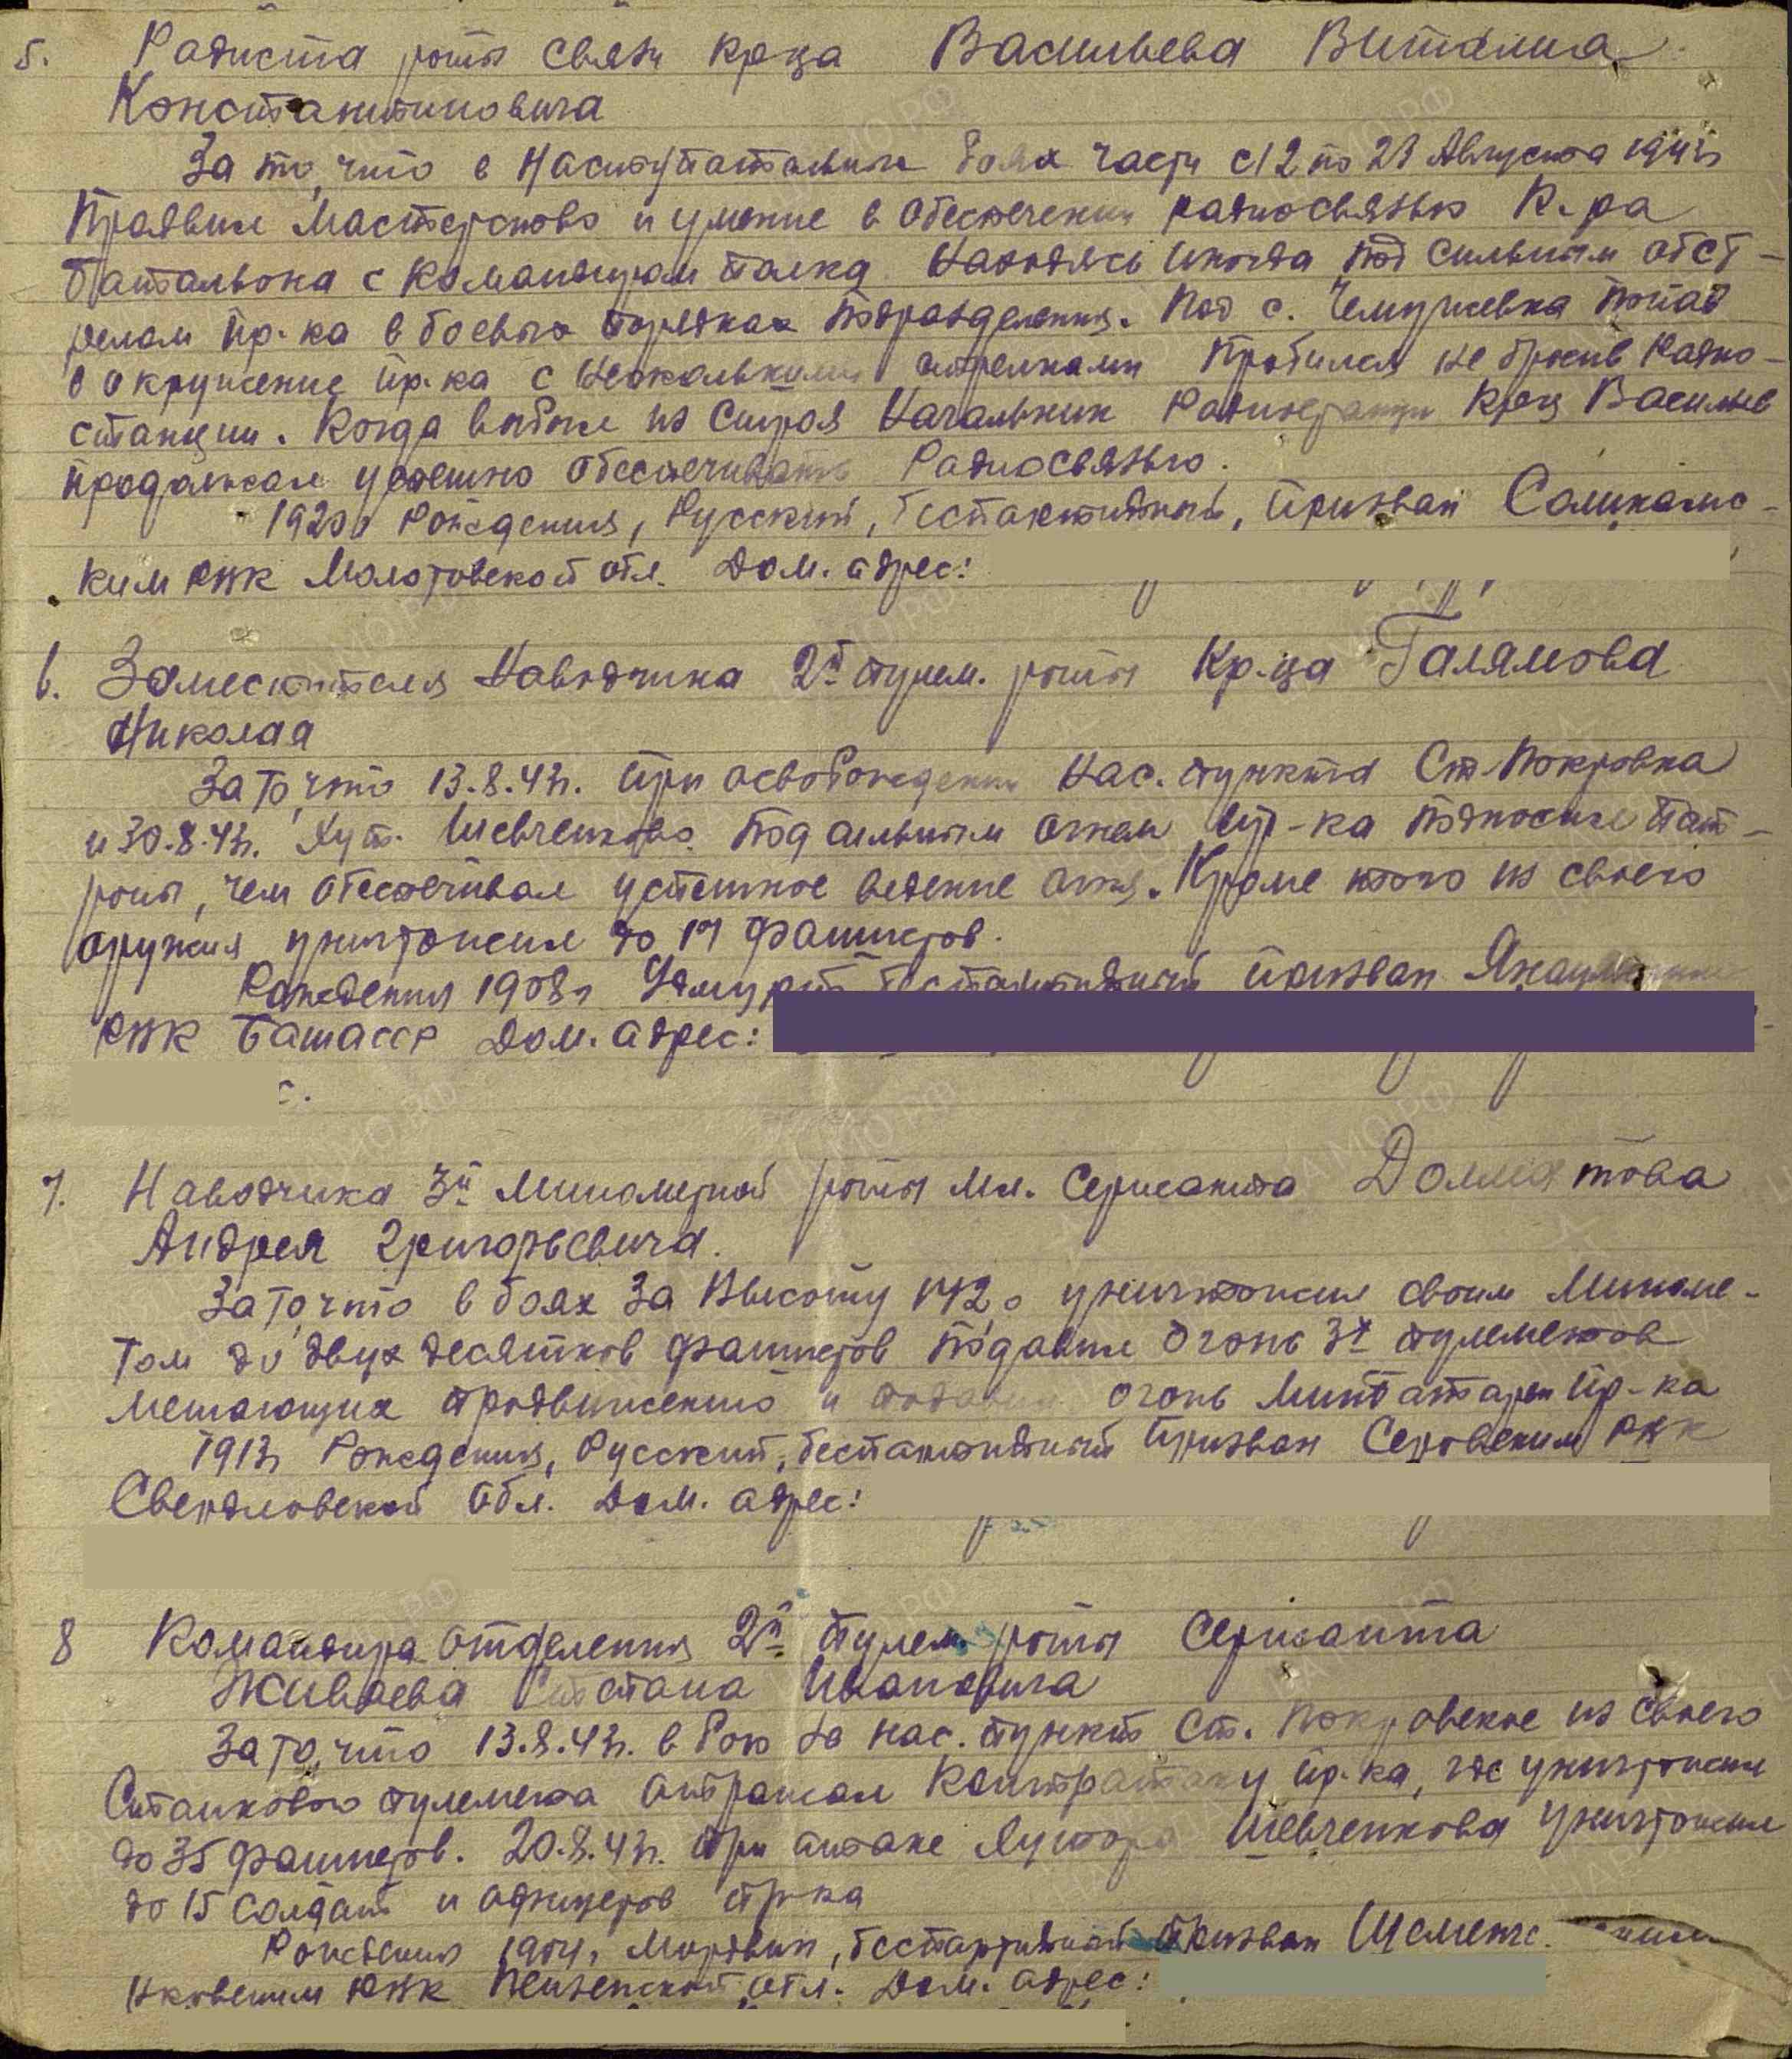 5. Радиста роты связи кр-ца Васильева Виталия
Константиновича
За то, что в наступательных боях части с 12 по 23 Августа 1943г.
проявил мастерство и умение в обеспечении радиосвязью К-ра
батальона с командиром полка. Находясь иногда под сильным обст-
релом пр-ка в боевых порядках подразделения. Под с. попав
в окружение пр-ка с несколькими стрелками пробился не бросив Радио-
станции. Когда выбыл из строя Начальник Радиостанции Кр-ец Васильев
продолжал успешно обеспечивать Радиосвязью.
1920г Рождения, Русский, беспартийный, призван Соликамс-
ким РВК Молотовской обл. Дом. адрес:
6. Заместителя Наводчика 2й пулем. роты Кр-ца Галямова
Николая
За то, что 13.8.43г. при освобождении Нас. пункта Ст. Покровка
и 30.8.43г. Хут. Шевченково под сильным огнем пр-ка подносил пат-
роны, чем обеспечивал успешное ведение огня. Кроме того из своего
оружия уничтожил до 17 фашистов.
Рождения 1908г Удмурт беспартийный призван
РВК БашАССР Дом. адрес:
с.
7. Наводчика 3й Минометной роты Мл. Сержанта Долматова
Андрея Григорьевича.
За то, что в боях за Высоту уничтожил своим Миноме-
том до двух десятков фашистов подавил огонь 3х пулеметов
мешающих продвижению и подавил огонь Минбатареи пр-ка
1913г Рождения, Русский, беспартийный призван Серовским РВК
Свердловской обл. Дом. адрес:
8 Командира отделения 2й пулем. роты Сержанта
Живаева Степана Ивановича
За то, что 13.8.43г. в бою за нас. пункт Ст. Покровское из своего
Станкового пулемета отражал Контратаку пр-ка, где уничтожил
до 35 фашистов. 20.8.43г. при атаке Хутора Шевченкова уничтожил
до 15 солдат и офицеров пр-ка
Рождения 1904г, Мордвин, беспартийный призван
РВК Пензенской обл. Дом. адрес: